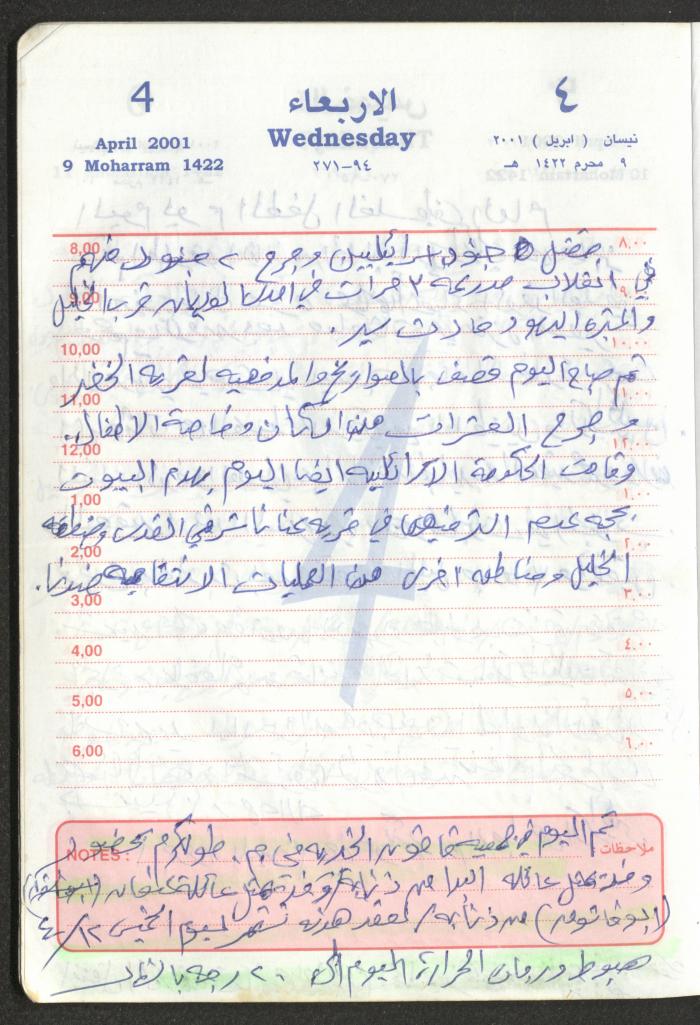 4
April 2001
9 Moharram 1422
الاربعاء
Wednesday
٢٧١-٩٤
٤
نيسان ( ابريل ) ٢٠٠١
٩ محرم ١٤٢٢ هـ
8,00 ٨,٠٠
مقتل ٥ جنود اسرائيليين وجرح ٢ جنود منهم
9,00 ٩,٠٠
في انقلاب مدرعة ٣ مرات في قرب الخليل
اليهود حادث سير.
10,00 ١٠,٠٠
تم صباح اليوم قصف بالصواريخ والمدفعيه لقرية الخضر
11,00 ١١,٠٠
وجرح العشرات من السكان وخاصة الاطفال.
12,00 ١٢,٠٠
وقامت الحكومة الاسرائيليه ايضا اليوم بهدم البيوت
1,00 ١,٠٠
بحجه عدم الترخيص في قريه عناتا شرقي القدس ومنطقه
2,00 ٢,٠٠
الخليل ومناطق اخرى من العمليات الانتقاميه ضدنا.
3,00 ٣,٠٠
4,00 ٤,٠٠
5,00 ٥,٠٠
6,00 ٦,٠٠
NOTES : ملاحظات :
تم اليوم في طولكرم بحضور
وفد يمثل عائله من ذنابه ووفد يمثل عائلة
من ذنابه / لعقد هدنه تستمر ليوم الخميس ١٢/٤
هبوط درجات الحرارة اليوم الى ٢٠ درجه